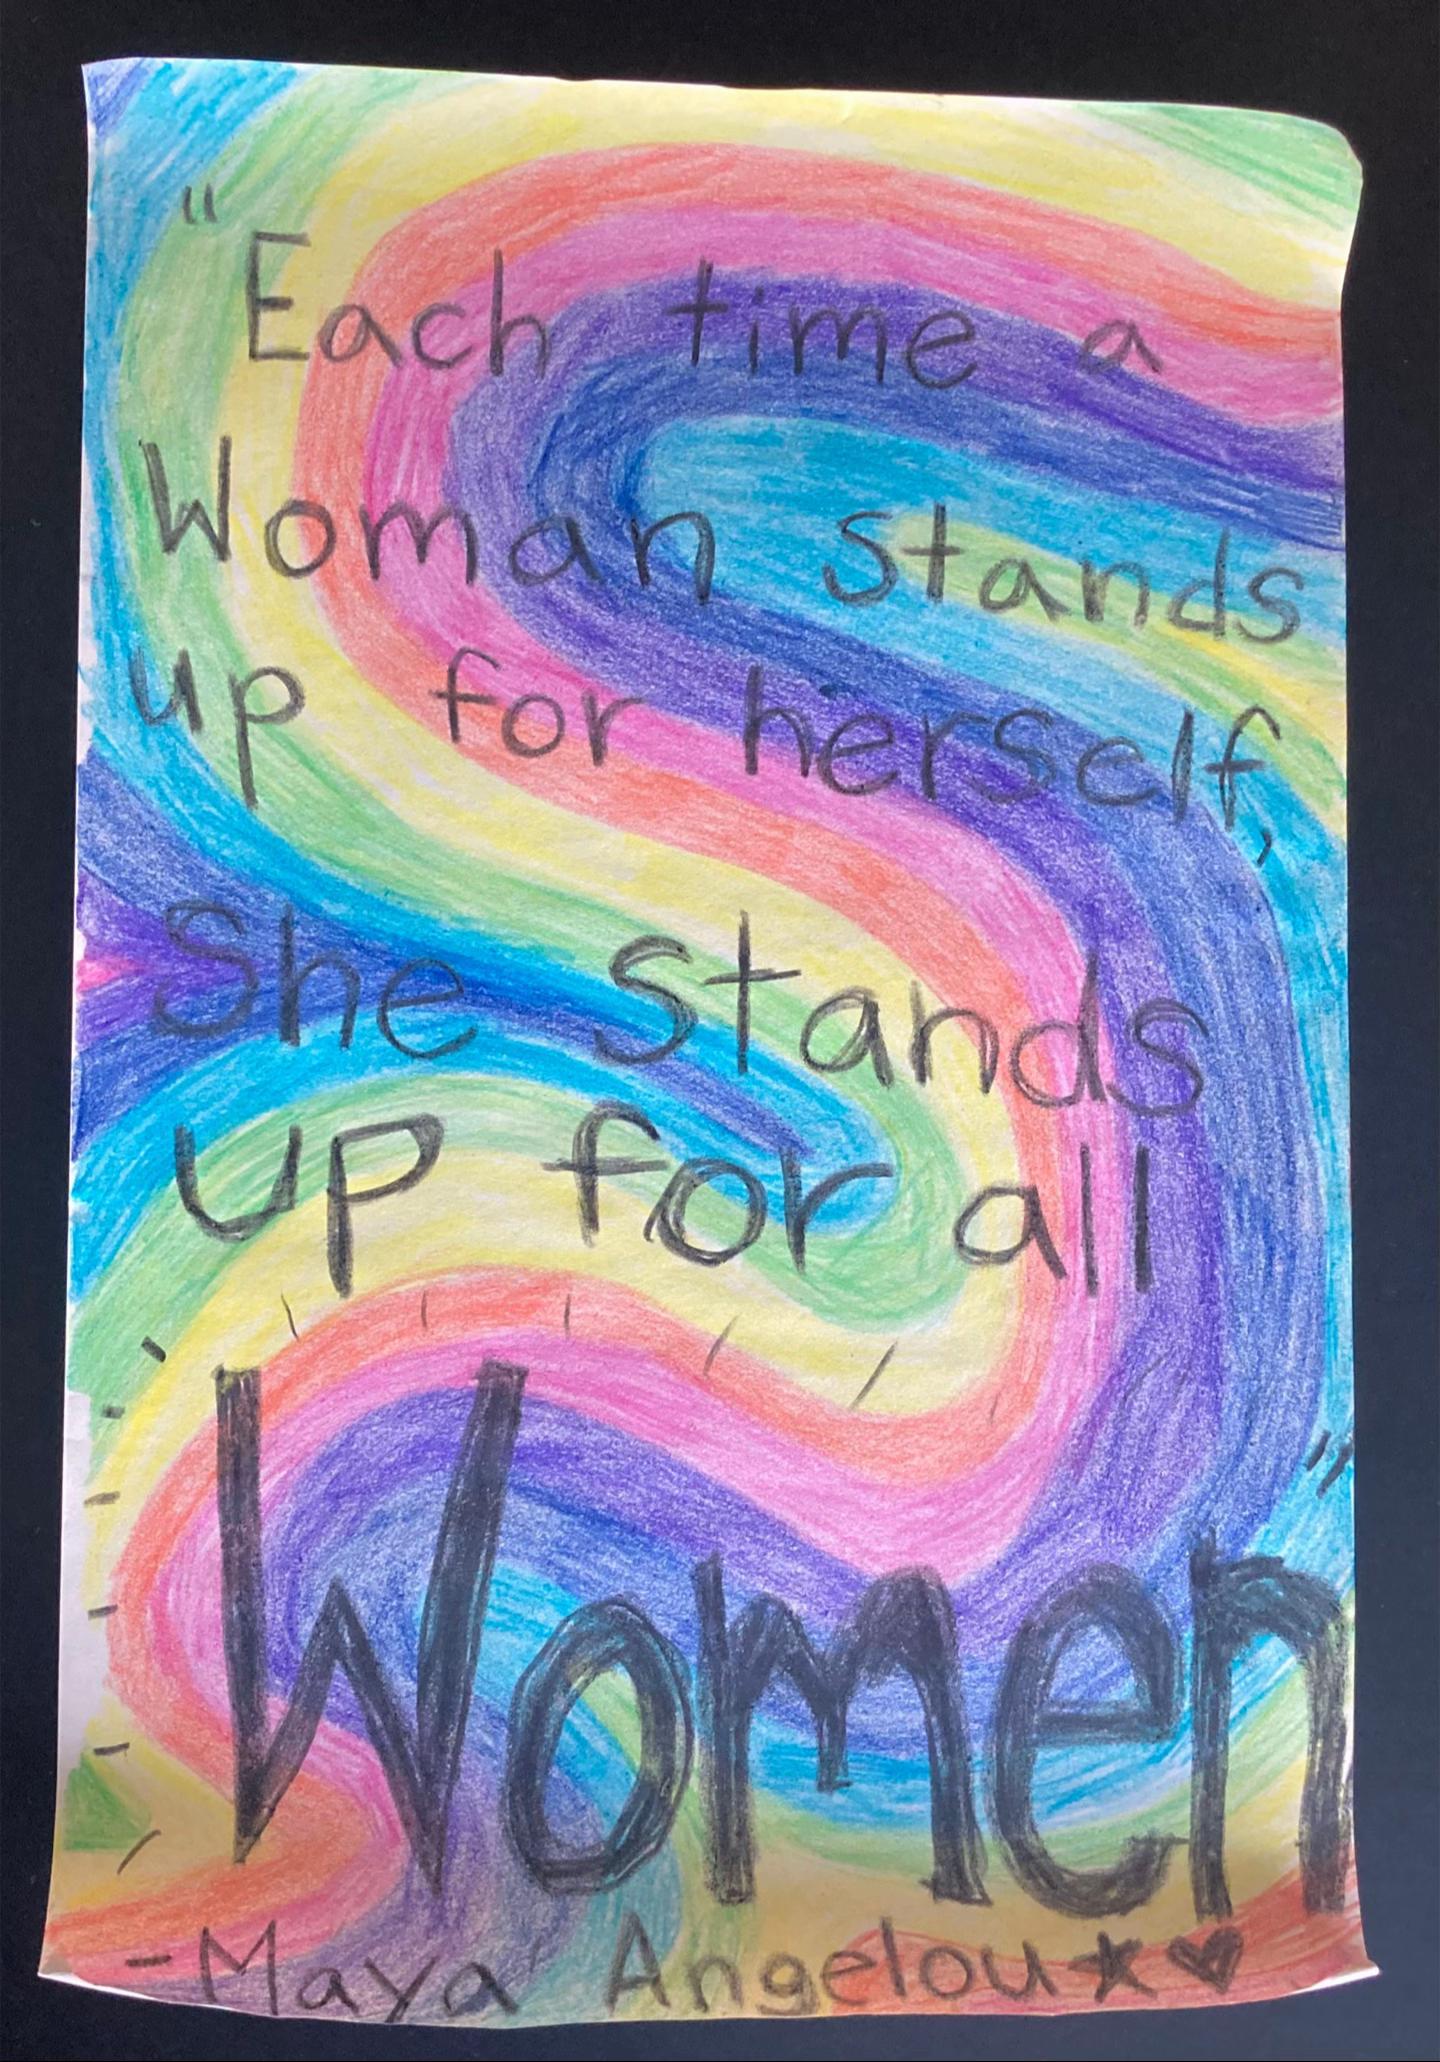 "Each time a
Woman stands
up for herself,
She stands
up for all
Women"
-Maya Angelou